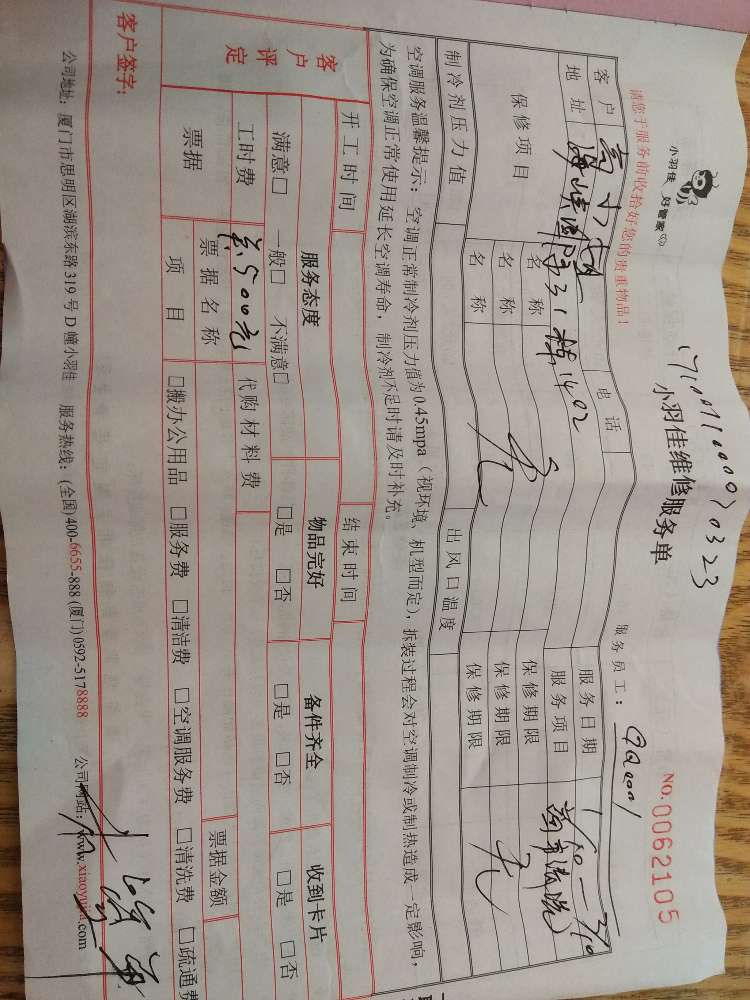 小羽佳 好管家
请您于服务前收拾好您的贵重物品！
小羽佳维修服务单
NO.0062105
服务员工：
客户 电话 服务日期
地址 海峡国际31栋1402 服务项目
保修项目 名称 保修期限
名称 保修期限
名称 无 保修期限 无
制冷剂压力值 出风口温度
空调服务温馨提示：空调正常制冷剂压力值为0.45mpa（视环境、机型而定），拆装过程会对空调制冷或制热造成一定影响，
为确保空调正常使用延长空调寿命，制冷剂不足时请及时补充。
开工时间 结束时间
客户评定 服务态度 物品完好 备件齐全 收到卡片
满意□ 一般□ 不满意□ □是 □否 □是 □否 □是 □否
工时费 500元 代购材料费
票据 票据名称 票据金额
项目 □搬办公用品 □服务费 □清洁费 □空调服务费 □清洗费 □疏通费
客户签字：
公司地址：厦门市思明区湖滨东路319号D幢小羽佳 服务热线：(全国)400-6655-888 (厦门)0592-5178888 公司网站：www.xiaoyujia.com